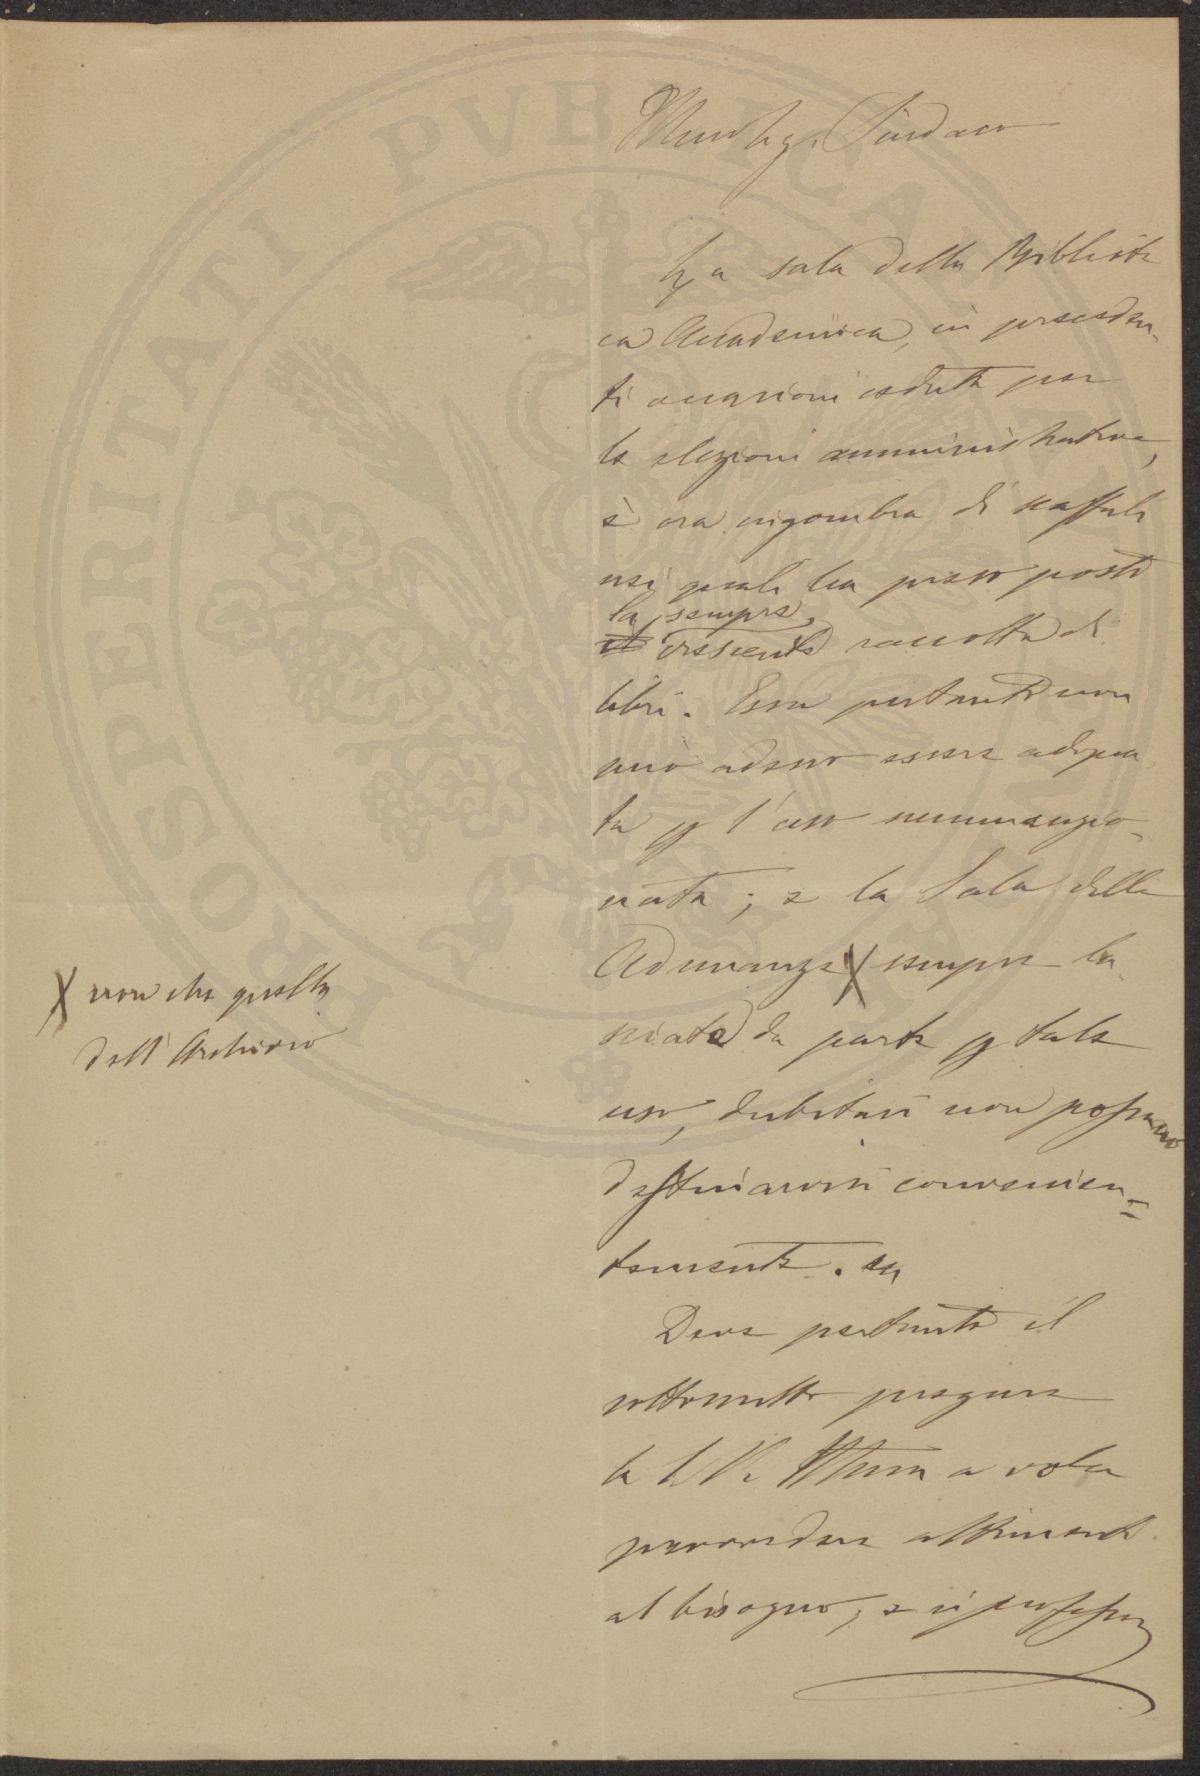 PROSPERITATI PUBLICAE AUGENDAE
Illustr. Sig. Sindaco
La sala della Bibliote
ca Accademica, in preceden-
ti occasioni ceduta per
le elezioni amministrative,
è ora ingombra di scaffali
nei quali ha preso posto
la sempre
crescente raccolta di
libri. Essa pertanto non
può adesso essere adopra
ta p l'uso summenzio-
nato; e la Sala delle
Adunanze X sempre la
sciate da parte p tale
uso, dubitasi non possano
destinarvisi convenien=
temente.
Deve pertanto il
sottoscritto pregare
la S. V. Illma a voler
provvedere altrimenti
al bisogno, e si professa
X non che quella
dell'Archivio